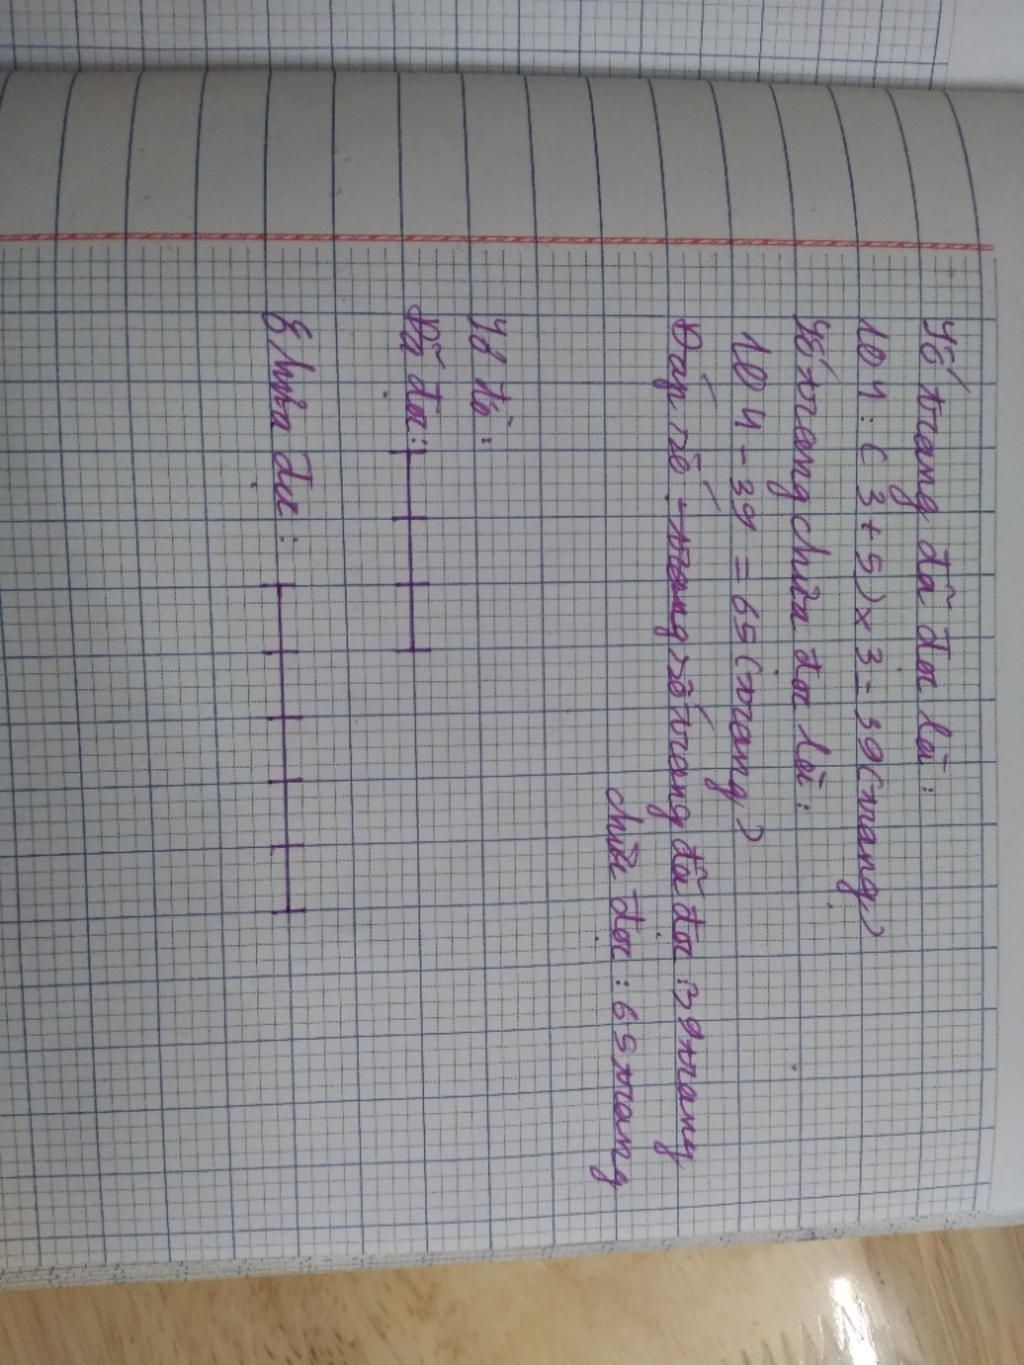 Số trang đã đọc là:
104: (3+5)x3=39(trang)
Số trang chưa đọc là:
104-39=65(trang)
Đáp số: số trang đã đọc 39 trang
chưa đọc: 65 trang
Sơ đồ:
Đã đọc:
Chưa đọc: